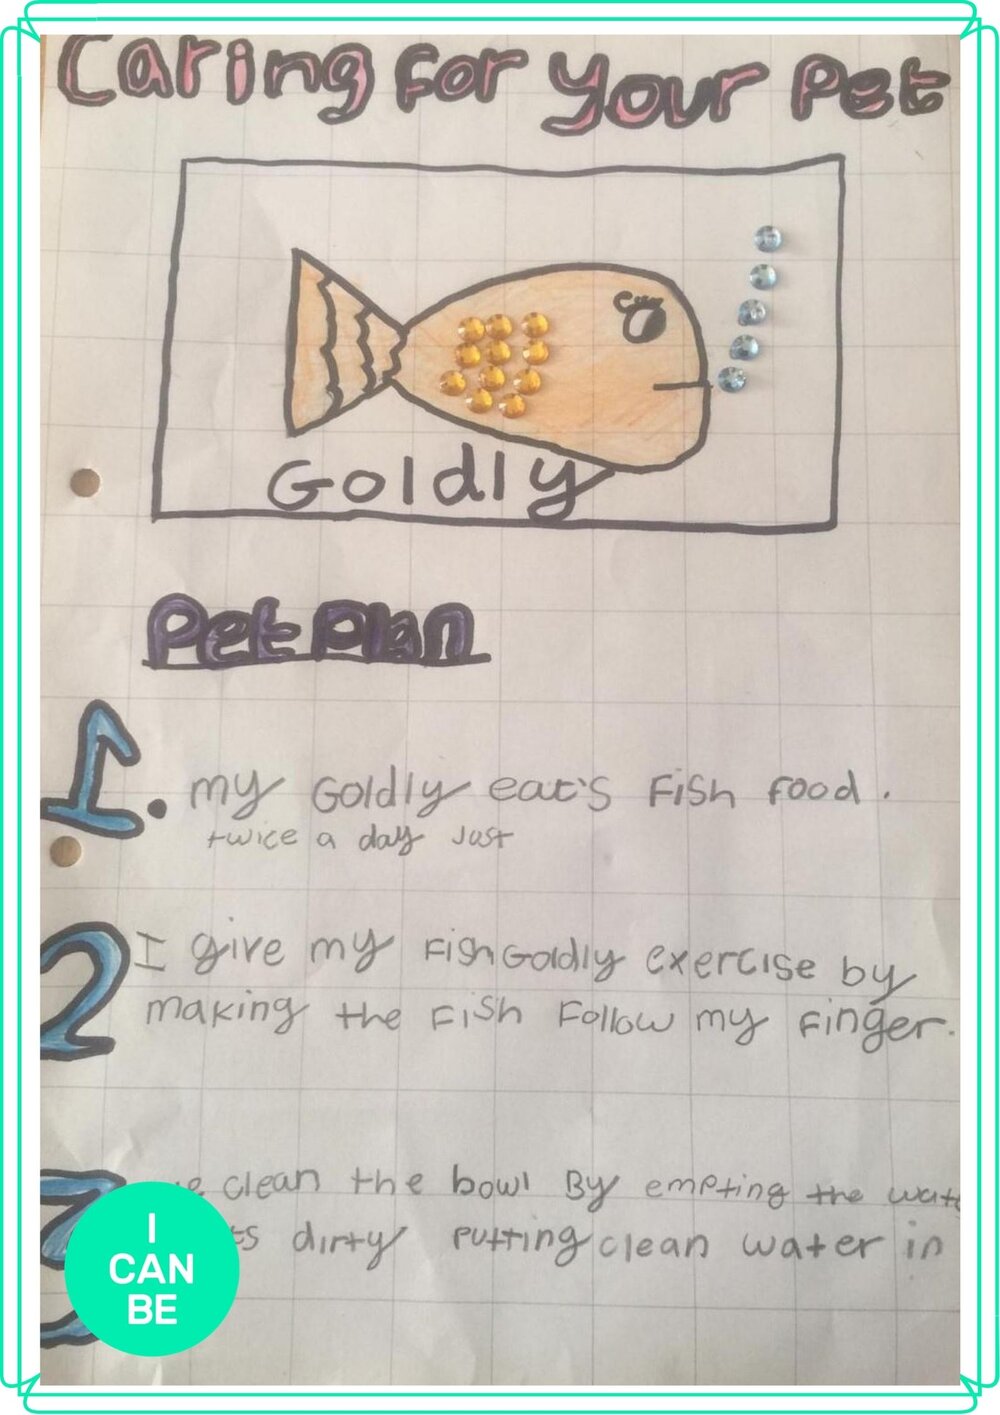 Caring for Your Pet
Goldly
Pet Plan
1. my Goldly eat's Fish food.
twice a day Just
2 I give my Fish Goldly exercise by
making the Fish Follow my Finger.
3 clean the bowl By empting the
dirty putting clean water in
I
CAN
BE